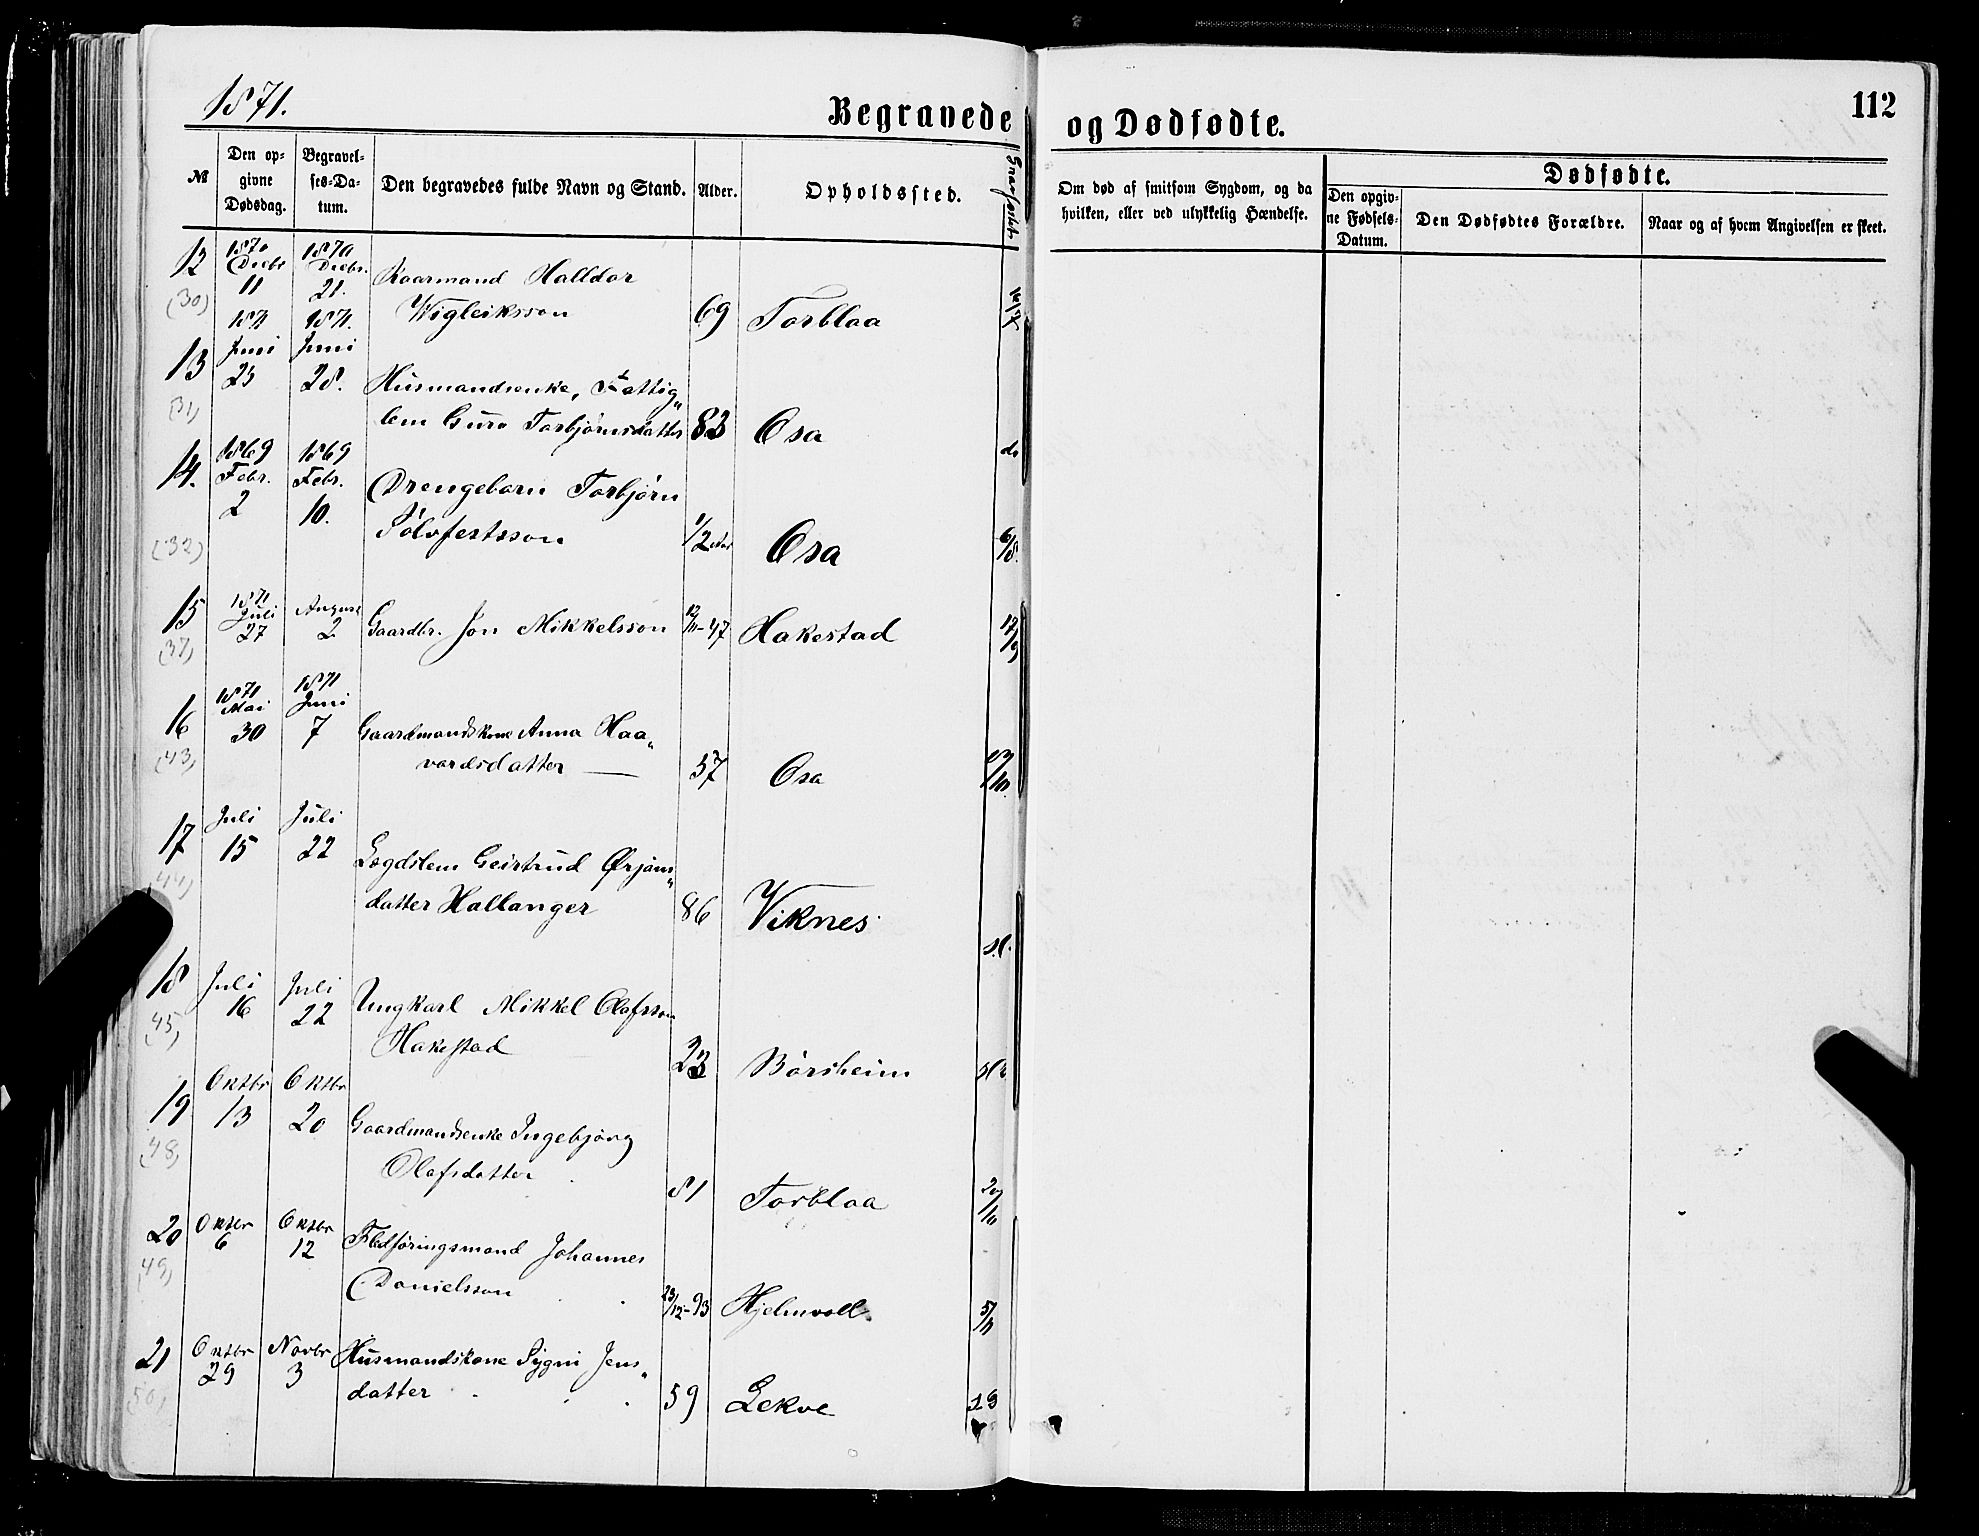 1871.
Begravede og Dødfødte.
112
№
Den op-
givne
Dødsdag.
Begravel-
ses-Da-
tum.
Den begravedes fulde Navn og Stand.
Alder.
Opholdssted.
Om død af smitsom Sygdom, og da
hvilken, eller ved ulykkelig Hændelse.
Dødfødte.
Den opgiv-
ne Fødsels-
Datum.
Den Dødfødtes Forældre.
Naar og af hvem Angivelsen er skeet.
12 1870 1870
Decbr Decbr.
(30) 11 21. Kaarmand Halldor
Wigleiksson 69 Torblaa
1871 1871.
13 Juni Juni
25 28. Husmandsenke, Fattig„
(31) lem Guro Torbjørnsdatter 83 Osa do
14. 1869 1869
Febr. Febr.
2 10. Drengebarn Torbjørn
(32) Sölvfertsson 1/2 Aar Osa 6/8.
15 1871 August
Juli
27 2 Gaardbr. Jon Mikkelsson 12/11-47 Hakestad 17/9
(37)
16 1871 1871
Mai Juni
30 7 Gaardmandskone Anna Haa„
(43) vardsdatter 57 Osa
17 Juli Juli
15 22 Lægdslem Geirtrud Ørjans„
(44) datter Hallanger 86 Viknes
18 Juli Juli
16 22 Ungkarl Mikkel Olafsson
(45) Hakestad 23 Börsheim
19 Oktbr Oktbr
13 20 Gaardmandsenke Ingebjörg
(48) Olafsdatter 81 Torblaa
20 Oktbr Oktbr
6 12 Fledföringsmand Johannes
(49) Danielsson 23/12-93 Hjelmvoll 5/11
21 Oktbr Novbr
29 3 Husmandskone Sygni Jens„
(50) datter 59 Lekve